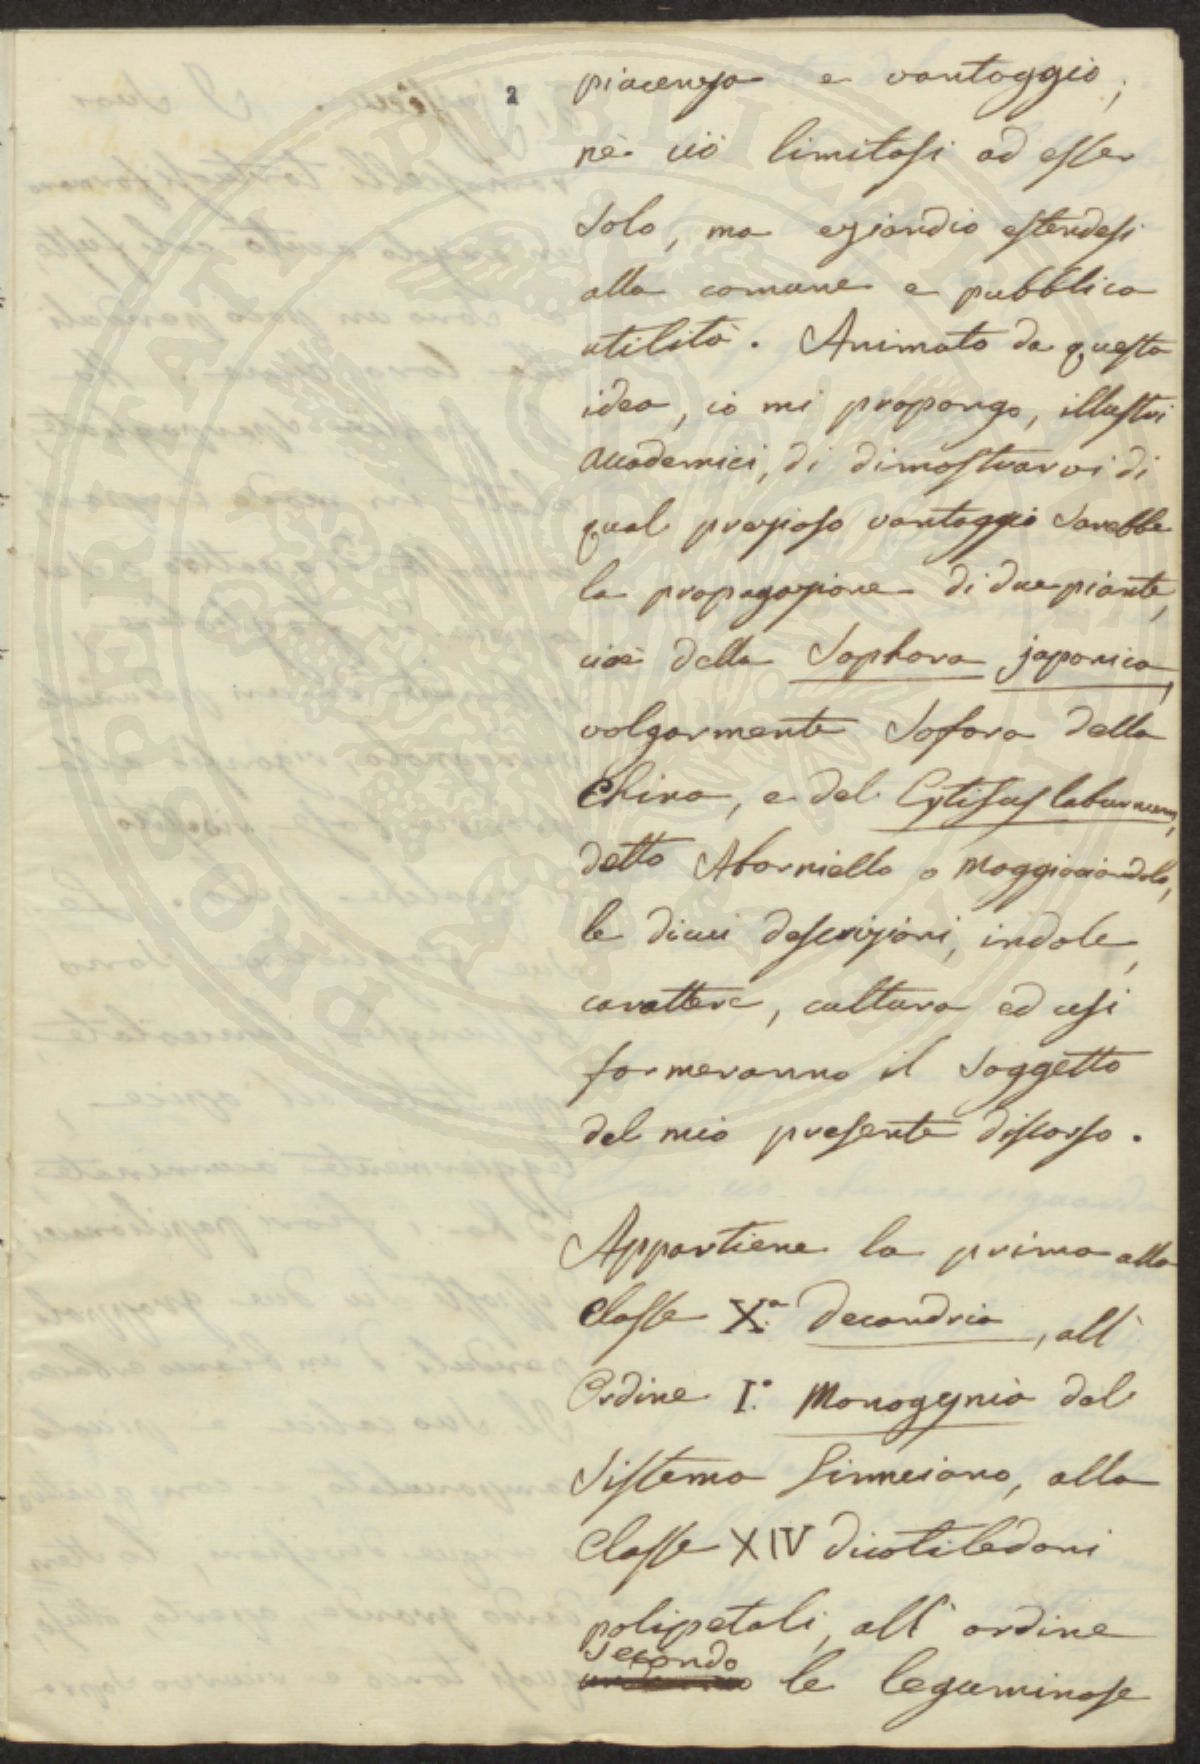 2
piacenza e vantaggio,
nè ciò limitasi ad esser
solo, ma eziandio estendesi
alla comune e pubblica
utilità. Animato da questa
idea, io mi propongo, illustri
accademici, di dimostrarvi di
qual prezioso vantaggio sarebbe
la propagazione di due piante,
cioè della Sophora japonica,
volgarmente Sofora della
China, e del Cytisus laburnum,
detto Avorniello o Maggiociondolo,
le di cui descrizioni, indole,
carattere, cultura ed usi
formeranno il soggetto
del mio presente discorso.
Appartiene la prima alla
Classe X.ª Decandria, all'
Ordine I.º Monogynia del
Sistema Linneiano, alla
Classe XIV dicotiledoni
polipetali, all' ordine
secondo
le leguminose
PROSPERITATI PVBLICAE